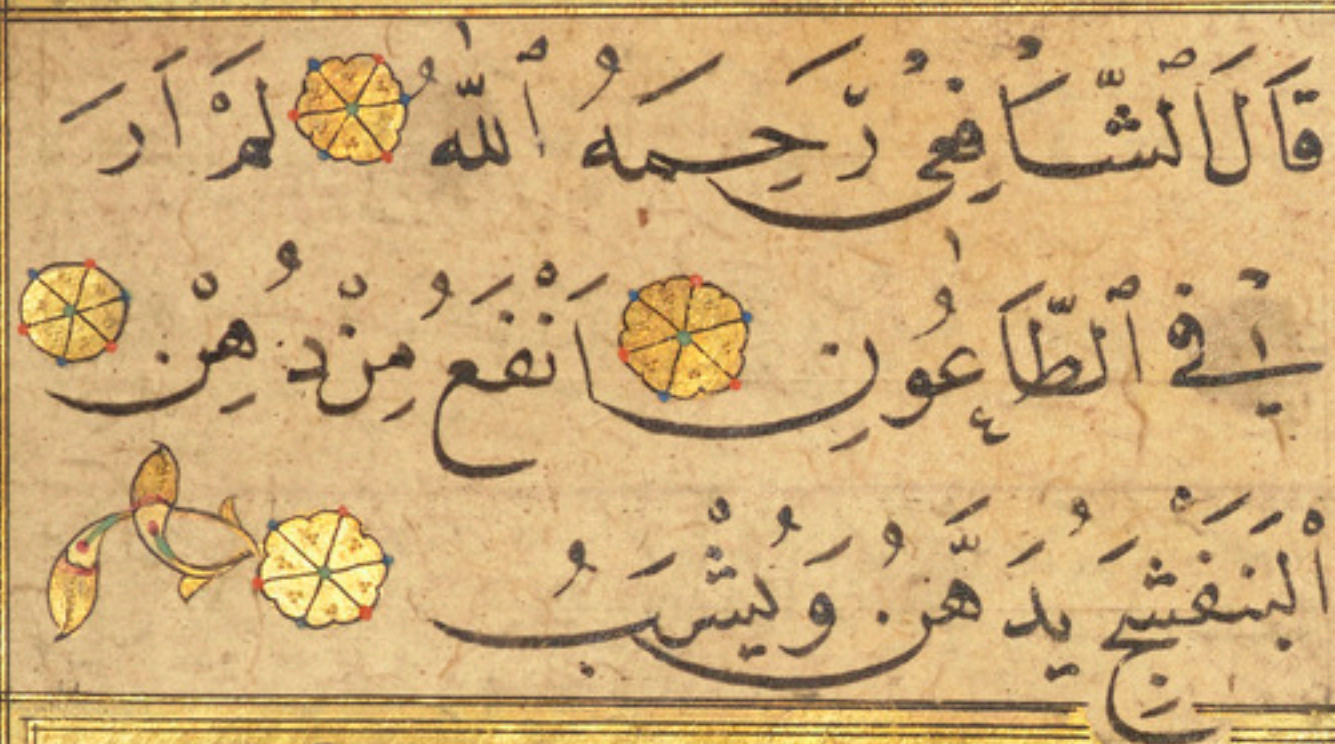 قَالَ ٱلشَّافِعِي رَّحِمَهُ ٱللّٰهُ لَمْ اَرَ
في ٱلطَّاعُونِ اَنْفَعُ مِنْ دُهْنِ
اْلبَنَفْشَجِ يُدَّهَنُ وَيُشْرَبُ